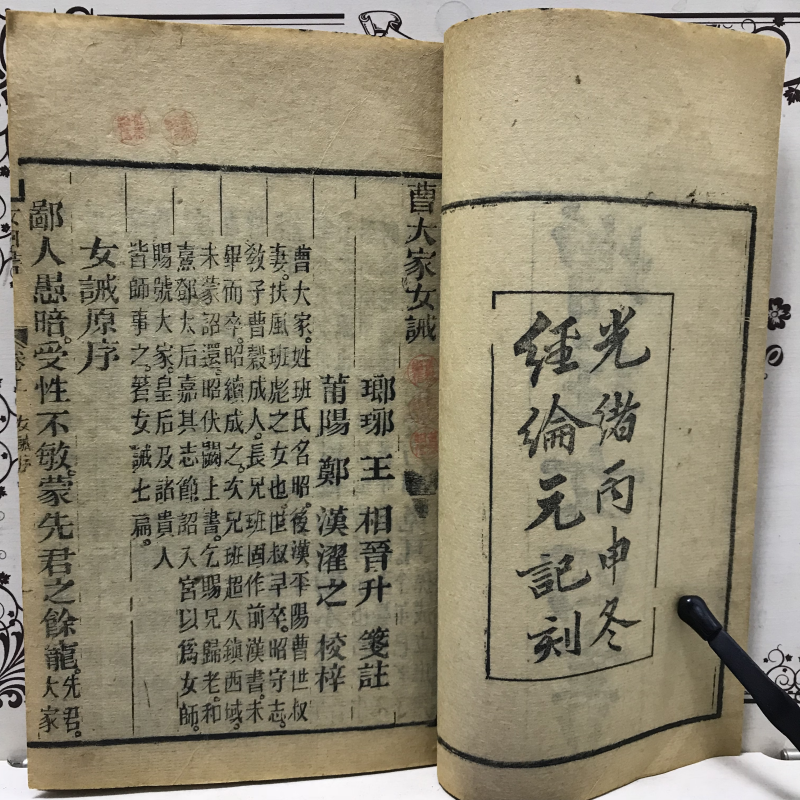 光緒丙申冬
經綸元記刻
曹大家女誡
瑯琊 王 相晉升 箋註
莆陽 鄭 漢濯之 校梓
曹大家。姓班氏名昭。後漢平陽曹世叔
妻。扶風班彪之女也。世叔早卒。昭守志。
教子曹穀成人。長兄班固作前漢書。未
畢而卒。昭續成之。次兄班超久鎮西域。
未蒙詔還。昭伏闕上書。乞賜兄歸老。和
熹鄧太后嘉其志節。詔入宮以爲女師。
賜號大家。皇后及諸貴人
皆師事之。著女誡七扁。
女誡原序
鄙人愚暗。受性不敏。蒙先君之餘寵。先君。大家
女誡序